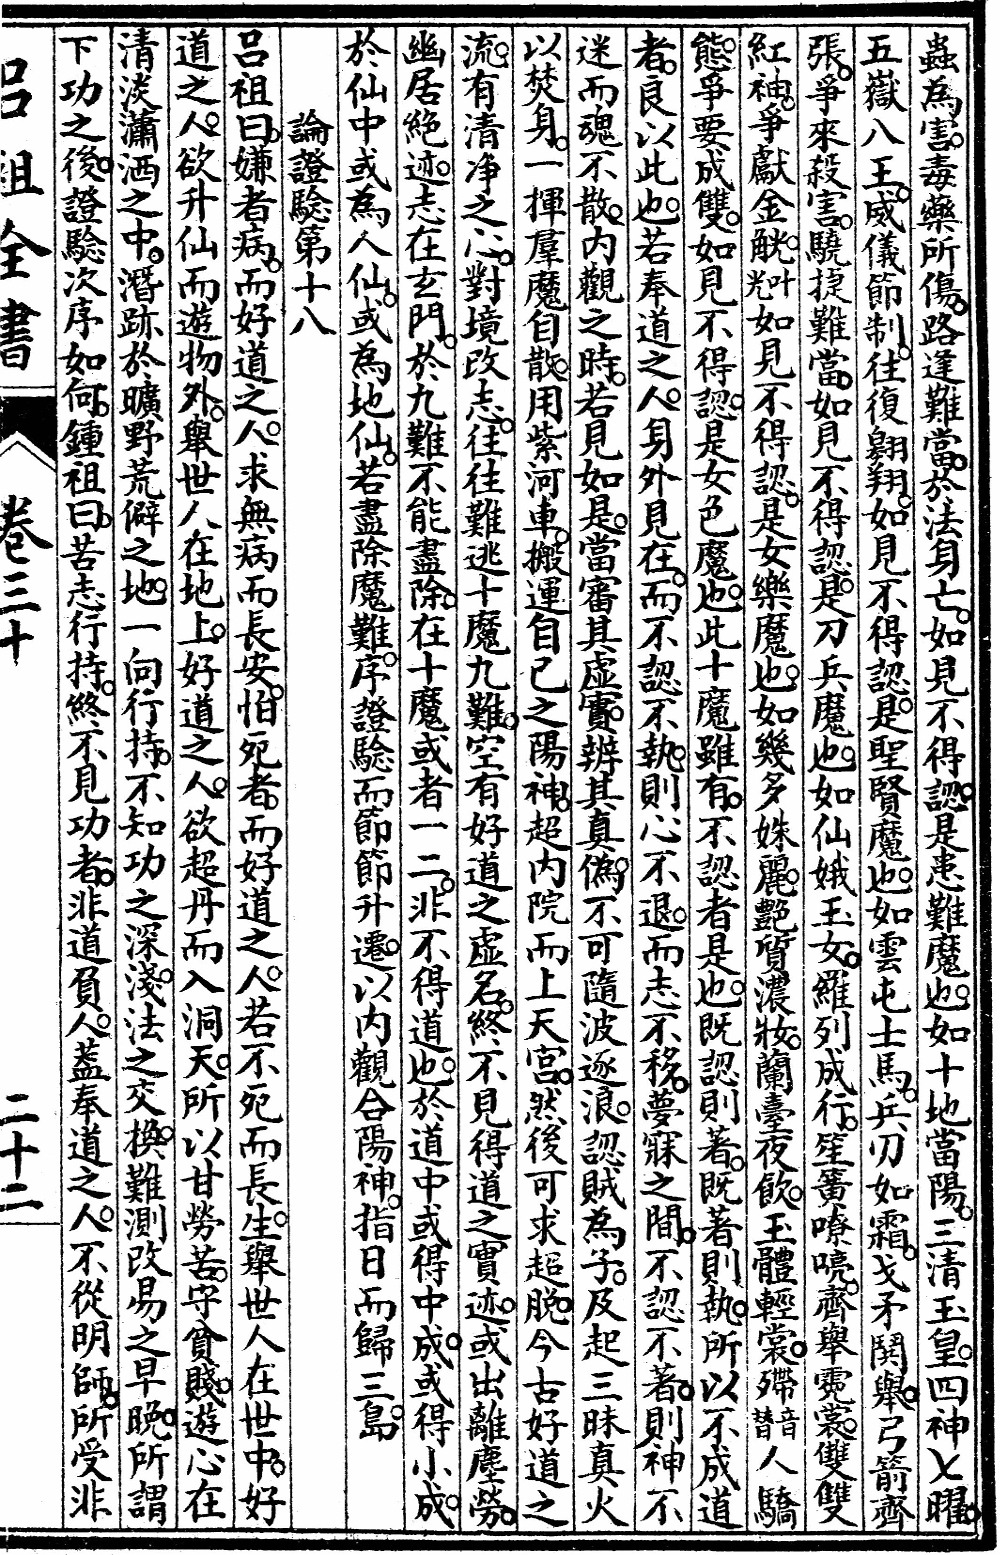 蟲為害。毒藥所傷。路逢難當。於法身亡。如見不得認。是患難魔也。如十地當陽。三清玉皇。四神七曜。
五嶽八王。威儀節制。往復翱翔。如見不得認。是聖賢魔也。如雲屯士馬。兵刃如霜。戈矛鬥舉。弓箭齊
張。爭來殺害。驍捷難當。如見不得認。是刀兵魔也。如仙娥玉女。羅列成行。笙簧嘹喨。齊舉霓裳。雙雙
紅袖。爭獻金觥。叶光如見不得認。是女樂魔也。如幾多姝麗。艷質濃妝。蘭臺夜飲。玉體輕裳。殢音替人驕
態。爭要成雙。如見不得認。是女色魔也。此十魔雖有。不認者是也。既認則著。既著則執。所以不成道
者。良以此也。若奉道之人。身外見在。而不認不執。則心不退。而志不移。夢寐之間。不認不著。則神不
迷而魂不散。內觀之時。若見如是。當審其虛實。辨其真偽。不可隨波逐浪。認賊為子。及起三昧真火
以焚身。一揮羣魔自散。用紫河車。搬運自己之陽神。超內院而上天宮。然後可求超脫。今古好道之
流。有清净之心。對境改志。往往難逃十魔九難。空有好道之虛名。終不見得道之實迹。或出離塵勞。
幽居絕迹。志在玄門。於九難不能盡除。在十魔或者一二。非不得道也。於道中或得中成。或得小成。
於仙中或為人仙。或為地仙。若盡除魔難。序證驗而節節升遷。以內觀合陽神。指日而歸三島。
論證驗第十八
呂祖曰。嫌者病。而好道之人。求無病而長安。怕死者。而好道之人。若不死而長生。舉世人在世中。好
道之人。欲升仙而遊物外。舉世人在地上。好道之人。欲超丹而入洞天。所以甘勞苦。守貧賤。遊心在
清淡瀟洒之中。潛跡於曠野荒僻之地。一向行持。不知功之深淺。法之交換。難測改易之早晚。所謂
下功之後。證驗次序如何。鍾祖曰。苦志行持。終不見功者。非道負人。蓋奉道之人。不從明師。所受非
呂祖全書
卷三十
二十二